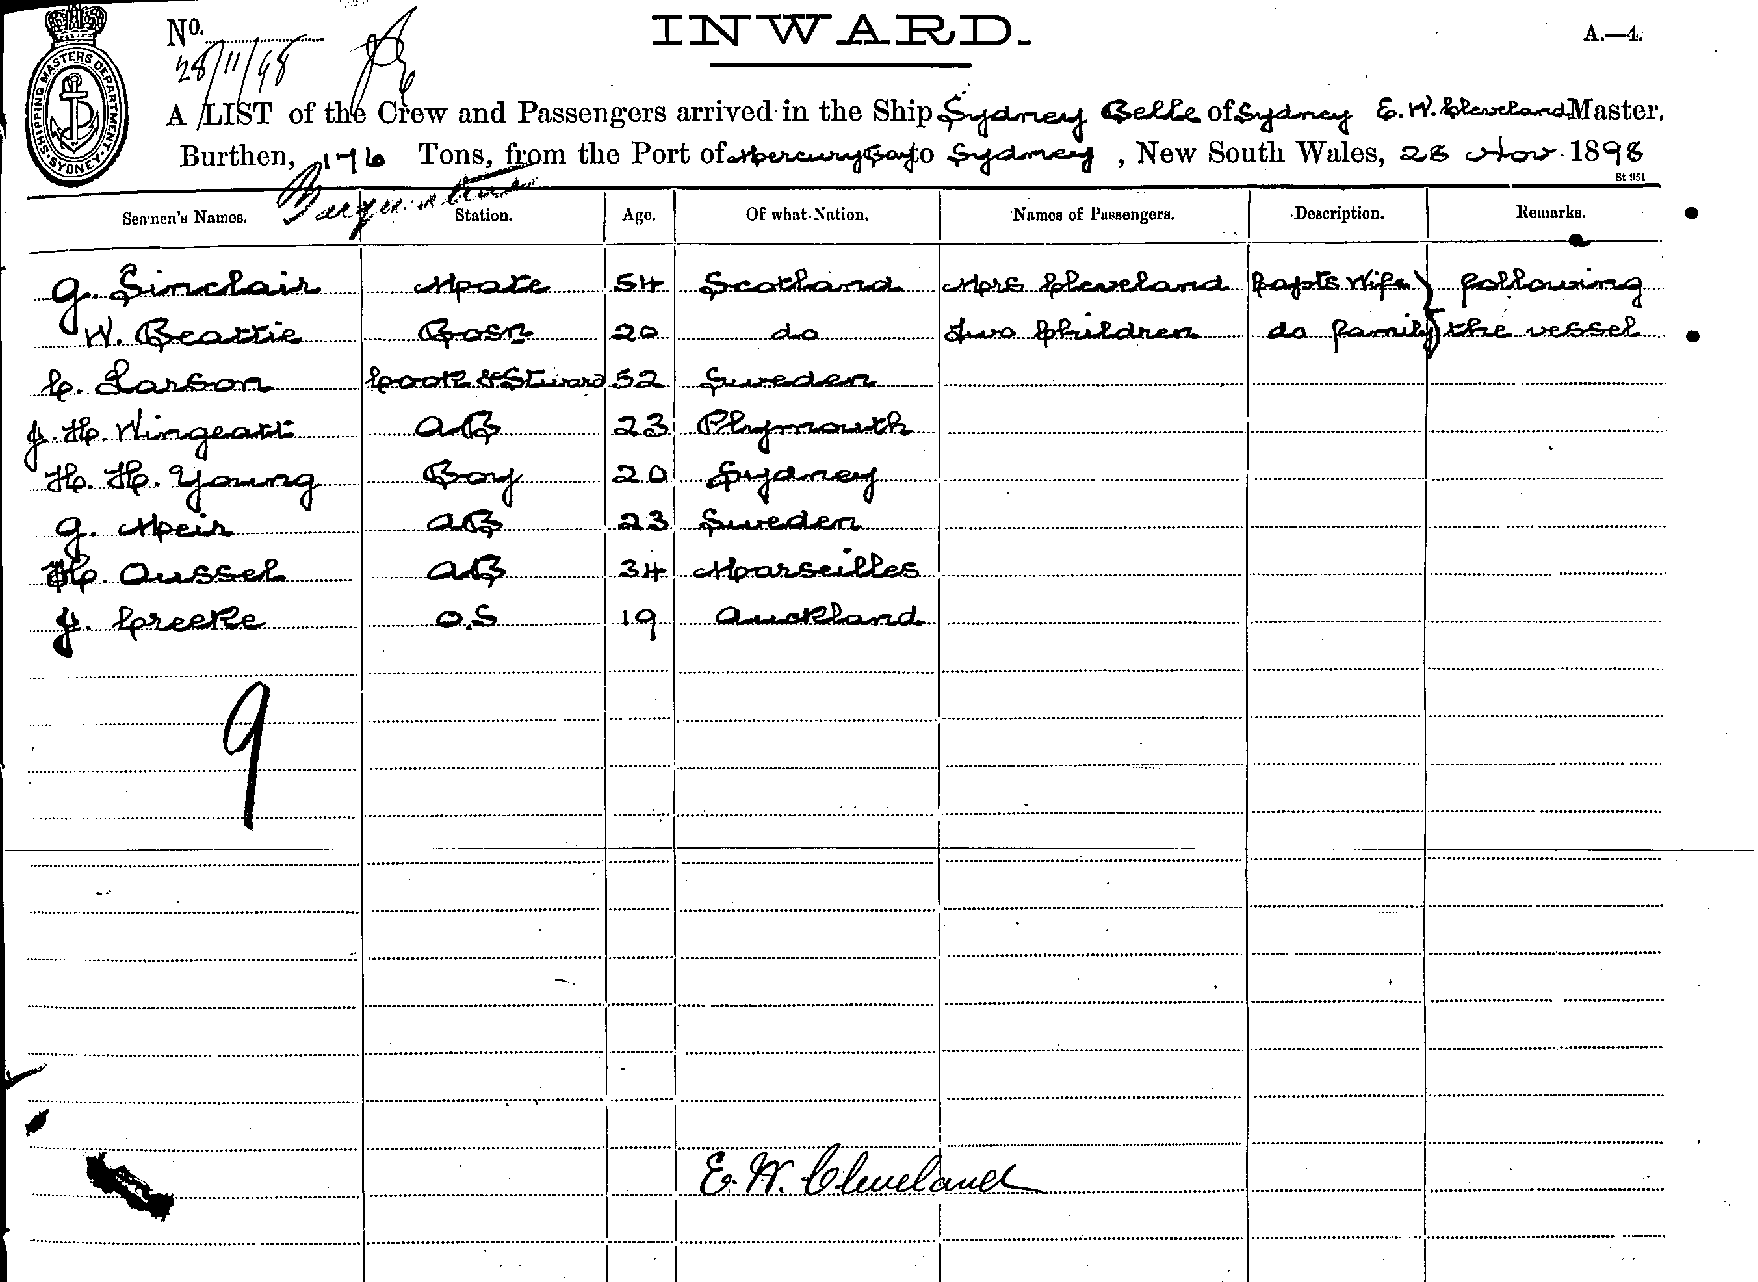 No.
INWARD.
A.—4.
28/11/98
SHIPPING MASTERS DEPARTMENT. SYDNEY.
A LIST of the Crew and Passengers arrived in the Ship Sydney Belle of Sydney E. W. Cleveland Master,
Burthen, 176 Tons, from the Port of Mercury Bay to Sydney, New South Wales, 28 Nov 1898
St 951
Barquentine
Seamen's Names. Station. Age. Of what Nation. Names of Passengers. Description. Remarks.
G. Sinclair Mate 54 Scotland Mrs Cleveland Capts Wife } following
W. Beattie Bosn 20 do Two Children do family } the vessel
C. Larson Cook & Steward 52 Sweden
J. H. Wingeatt AB 23 Plymouth
H. H. Young Boy 20 Sydney
G. Meir AB 23 Sweden
H. Aussel AB 34 Marseilles
J. Creeke O.S 19 Auckland
9
E. W. Cleveland